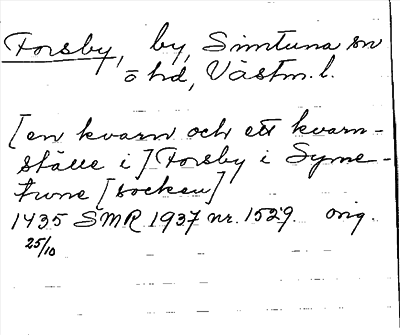 Forsby, by, Simtuna sn
ö hd, Västm. l.
[en kvarn och ett kvarn-
ställe i] Forsby i Syme-
tune [socken]
1435 SMR 1937 nr. 1529. orig.
25/10